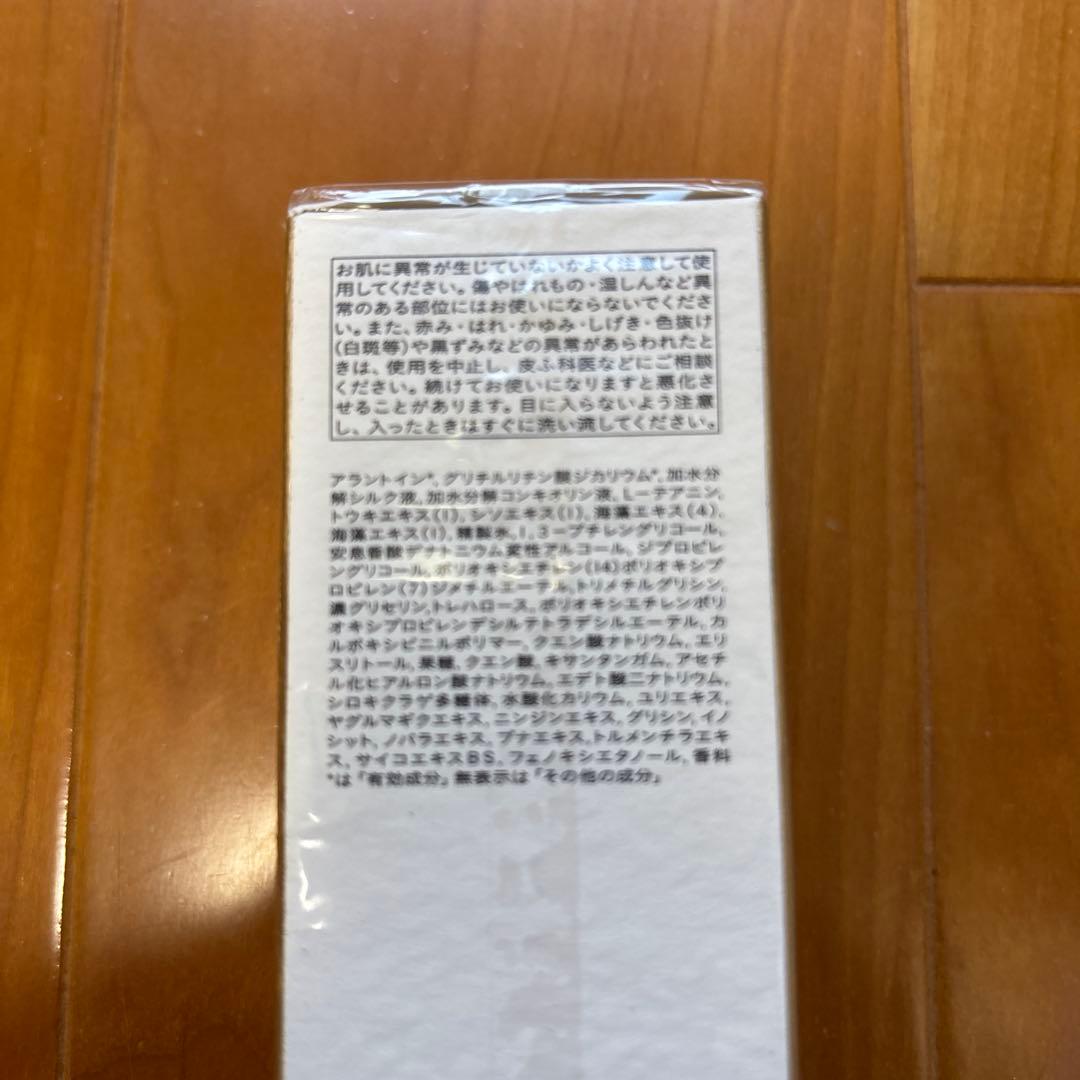 お肌に異常が生じていないかよく注意して使
用してください。傷やはれもの・湿しんなど異
常のある部位にはお使いにならないでくださ
い。また、赤み・はれ・かゆみ・しげき・色抜け
(白斑等)や黒ずみなどの異常があらわれたと
きは、使用を中止し、皮ふ科医などにご相談
ください。続けてお使いになりますと悪化さ
せることがあります。目に入らないよう注意
し、入ったときはすぐに洗い流してください。
アラントイン*, グリチルリチン酸ジカリウム*, 加水分
解シルク液, 加水分解コンキオリン液, L－テアニン,
トウキエキス(1), シソエキス(1), 海藻エキス(4),
海藻エキス(1), 精製水, 1,3－ブチレングリコール,
安息香酸デナトニウム変性アルコール, ジプロピレ
ングリコール, ポリオキシエチレン(14)ポリオキシプ
ロピレン(7)ジメチルエーテル, トリメチルグリシン,
濃グリセリン, トレハロース, ポリオキシエチレンポリ
オキシプロピレンデシルテトラデシルエーテル, カ
ルボキシビニルポリマー, クエン酸ナトリウム, エリ
スリトール, 果糖, クエン酸, キサンタンガム, アセチ
ル化ヒアルロン酸ナトリウム, エデト酸二ナトリウム,
シロキクラゲ多糖体, 水酸化カリウム, ユリエキス,
ヤグルマギクエキス, ニンジンエキス, グリシン, イノ
シット, ノバラエキス, ブナエキス, トルメンチラエキ
ス, サイコエキスBS, フェノキシエタノール, 香料
*は「有効成分」無表示は「その他の成分」